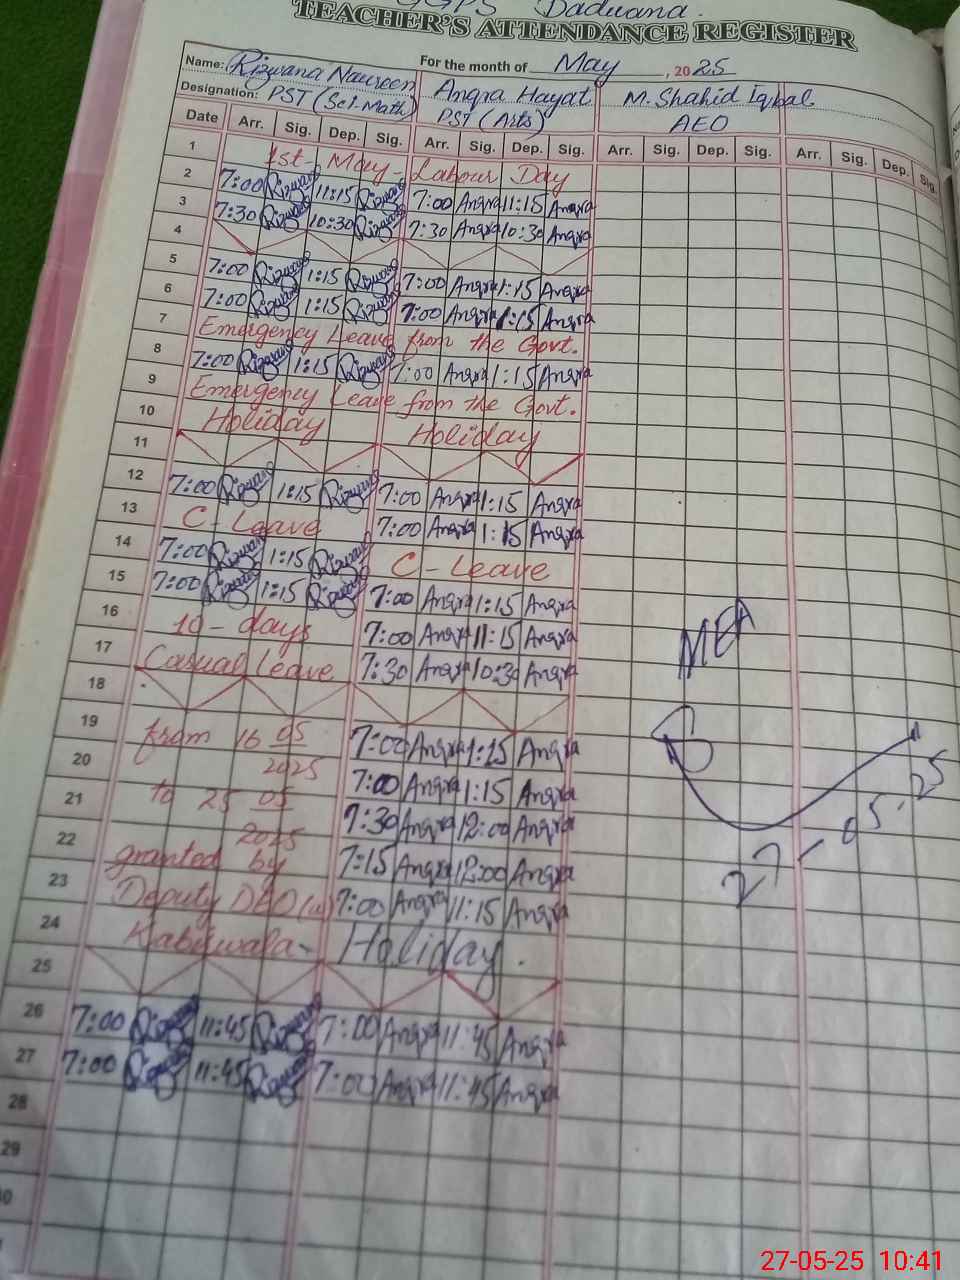 GGPS Daduana.
TEACHER'S ATTENDANCE REGISTER
For the month of May, 2025
Name: Rizwana Naureen Angra Hayat M. Shahid Iqbal
Designation: PST (Sci. Math) PST (Arts) AEO
Date Arr. Sig. Dep. Sig. Arr. Sig. Dep. Sig. Arr. Sig. Dep. Sig. Arr. Sig. Dep. Sig.
1 1st - May - Labour Day
2 7:00 Rizwana 11:15 Rizwana 7:00 Angra 11:15 Angra
3 7:30 Rizwana 10:30 Rizwana 7:30 Angra 10:30 Angra
4
5 7:00 Rizwana 1:15 Rizwana 7:00 Angra 1:15 Angra
6 7:00 Rizwana 1:15 Rizwana 7:00 Angra 1:15 Angra
7 Emergency Leave from the Govt.
8 7:00 Rizwana 1:15 Rizwana 7:00 Angra 1:15 Angra
9 Emergency Leave from the Govt.
10 Holiday Holiday
11
12 7:00 Rizwana 1:15 Rizwana 7:00 Angra 1:15 Angra
13 C-Leave 7:00 Angra 1:15 Angra
14 7:00 Rizwana 1:15 Rizwana C-Leave
15 7:00 Rizwana 1:15 Rizwana 7:00 Angra 1:15 Angra
16 10-days 7:00 Angra 11:15 Angra
17 Casual Leave 7:30 Angra 10:30 Angra
18
19 from 16 05 2025 7:00 Angra 1:15 Angra
20 7:00 Angra 1:15 Angra
21 to 25 05 2025 7:30 Angra 12:00 Angra
22 granted by 7:15 Angra 12:00 Angra
23 Deputy DEO (w) 7:00 Angra 11:15 Angra
24 Kabirwala- Holiday.
25
26 7:00 Rizwana 11:45 Rizwana 7:00 Angra 11:45 Angra
27 7:00 Rizwana 11:45 Rizwana 7:00 Angra 11:45 Angra
28
29
MEA
27-05-25
27-05-25 10:41